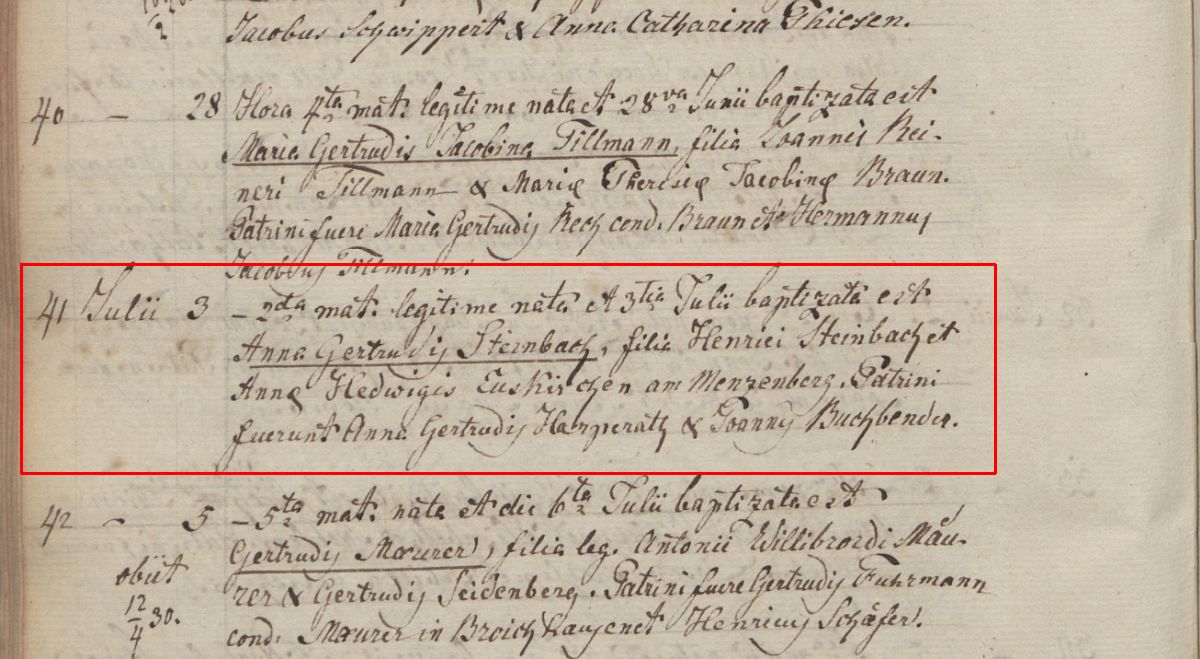 Jacobus Schwippert & Anna Catharina Thiesen.
40 – 28 Hora 4ta mat: legitime nata et 28va Junii baptizata est
Maria Gertrudis Jacobina Tillmann, filia Joannis Rei-
neri Tillmann & Mariæ Theresiæ Jacobinæ Braun.
Patrini fuere Maria Gertrudis Rech cond. Braun et Hermannus
Jacobus Tillmann.
41 Julii 3 – 2da mat: legitime nata et 3tia Julii baptizata est
Anna Gertrudis Steinbach, filia Henrici Steinbach et
Annæ Hedwigis Euskirchen am Menzenberg. Patrini
fuerunt Anna Gertrudis Harperath & Joannes Buchbender.
42 – 5 – 5ta mat: nata et die 6ta Julii baptizata est
Gertrudis Maurer, filia leg. Antonii Willibrordi Mau-
obiit
rer & Gertrudis Seidenberg. Patrini fuere Gertrudis Fuhrmann
12/4 30.
cond. Maurer in Broichhausen et Henricus Schäfer.